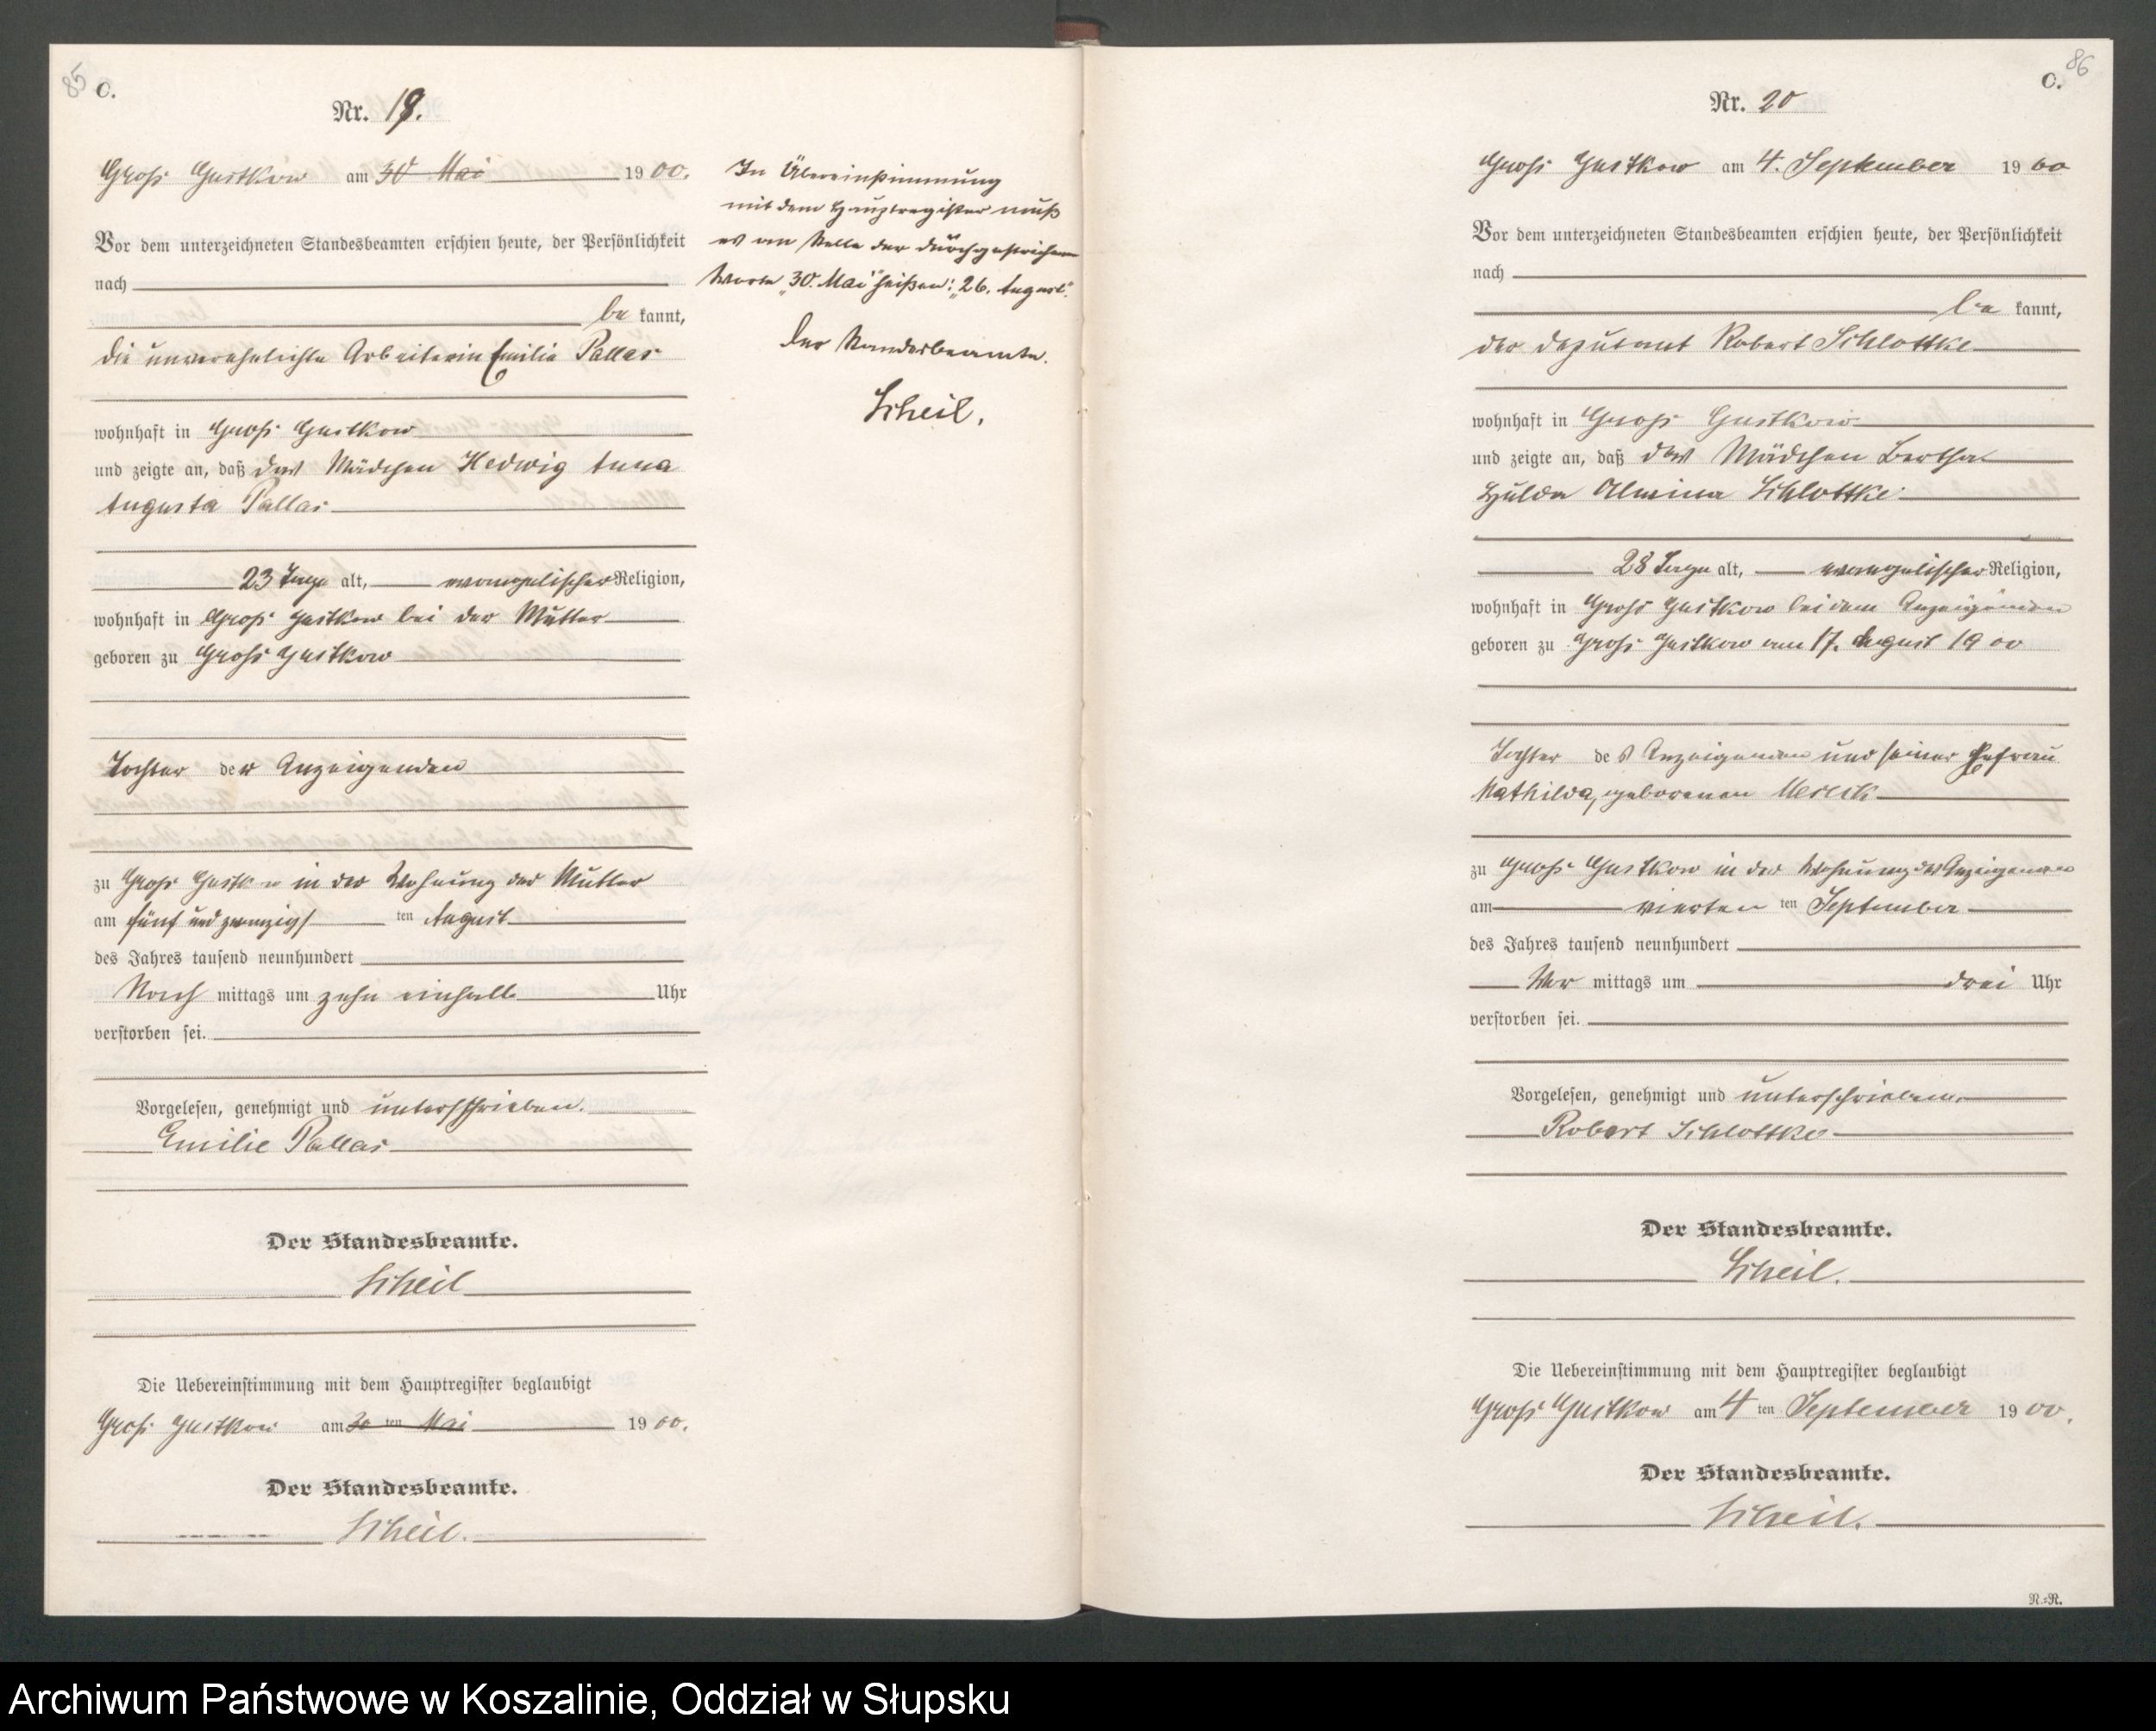 85
C.
Nr. 19.
Gross Gustkow am 30 Mai 1900.
Vor dem unterzeichneten Standesbeamten erschien heute, der Persönlichkeit
nach
be kannt,
die unverehelichte Arbeiterin Emilie Pallas
wohnhaft in Gross Gustkow
und zeigte an, daß das Mädchen Hedwig Anna
Augusta Pallas
23 Tage alt, evangelischer Religion,
wohnhaft in Gross Gustkow bei der Mutter
geboren zu Gross Gustkow
Tochter der Anzeigenden
zu Gross Gustkow in der Wohnung der Mutter
am fünf und zwanzigsten August
des Jahres tausend neunhundert
Nach mittags um zehn einhalb Uhr
verstorben sei.
Vorgelesen, genehmigt und unterschrieben.
Emilie Pallas
Der Standesbeamte.
Scheil
Die Uebereinstimmung mit dem Hauptregister beglaubigt
Gross Gustkow am 30 ten Mai 1900.
Der Standesbeamte.
Scheil.
In Übereinstimmung
mit dem Hauptregister muß
es an Stelle der durchgestrichenen
Worte „30. Mai" heißen: „26. August".
Der Standesbeamte.
Scheil.
86
C.
Nr. 20
Gross Gustkow am 4. September 1900
Vor dem unterzeichneten Standesbeamten erschien heute, der Persönlichkeit
nach
be kannt,
der Deputant Robert Schlottke
wohnhaft in Gross Gustkow
und zeigte an, daß das Mädchen Bertha
Hulda Almina Schlottke
28 Tage alt, evangelischer Religion,
wohnhaft in Gross Gustkow bei dem Anzeigenden
geboren zu Gross Gustkow am 17. August 1900
Tochter des Anzeigenden und seiner Ehefrau
Mathilda, geborenen
zu Gross Gustkow in der Wohnung des Anzeigenden
am vierten ten September
des Jahres tausend neunhundert
Vor mittags um drei Uhr
verstorben sei.
Vorgelesen, genehmigt und unterschrieben.
Robert Schlottke
Der Standesbeamte.
Scheil.
Die Uebereinstimmung mit dem Hauptregister beglaubigt
Gross Gustkow am 4 ten September 1900.
Der Standesbeamte.
Scheil.
R.=R.
Archiwum Państwowe w Koszalinie, Oddział w Słupsku